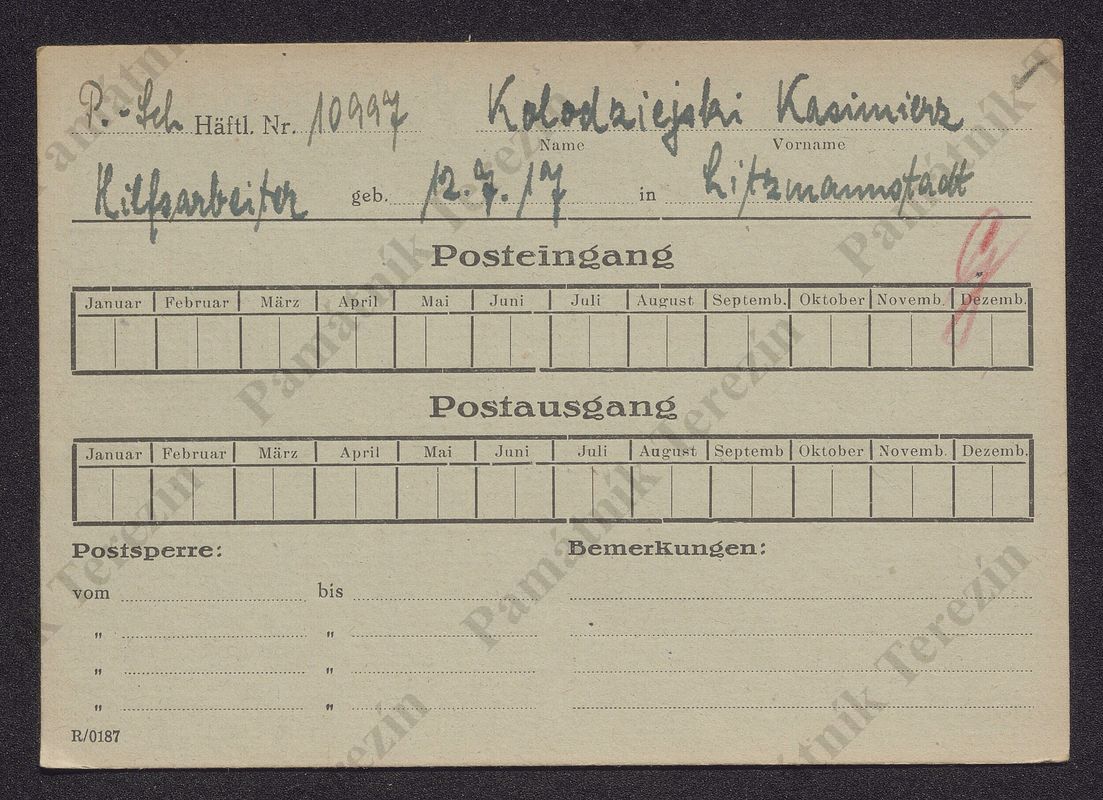 P.-Sch Häftl. Nr. 10997 Kolodziejski Kasimierz
Name Vorname
Hilfsarbeiter geb. 12.7.17 in Litzmannstadt
Posteingang
Januar Februar März April Mai Juni Juli August Septemb. Oktober Novemb. Dezemb.
Postausgang
Januar Februar März April Mai Juni Juli August Septemb Oktober Novemb. Dezemb.
Postsperre: Bemerkungen:
vom bis
" "
" "
" "
R/0187
Památník Terezín